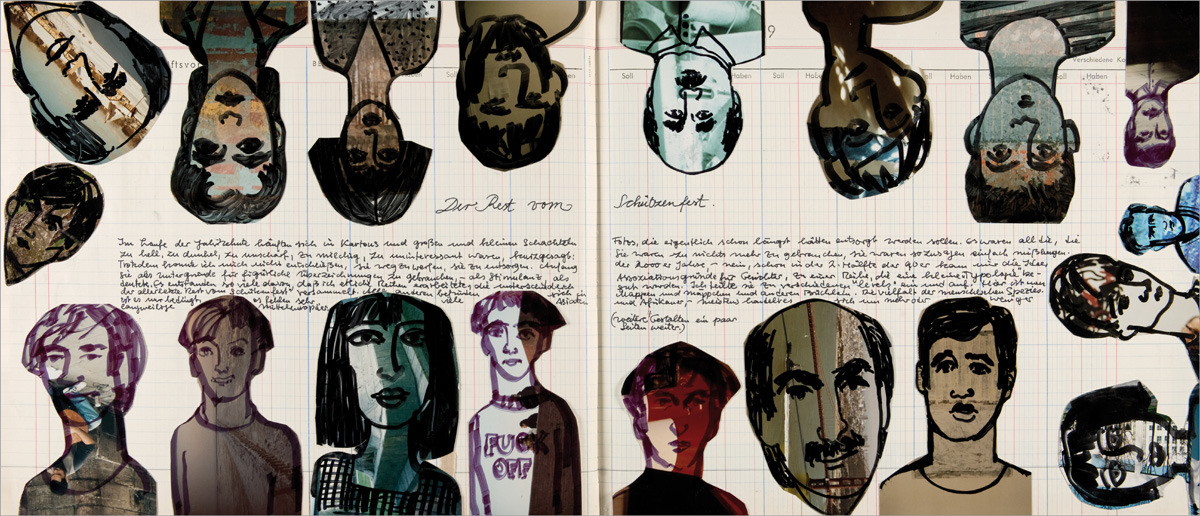 ftsvor
Be
haben
Soll
Haben
Soll
Haben
Soll
Haben
Soll
Haben
9
Verschiedene Ko
Haben
Der Rest vom Schützenfest.
Im Laufe der Jahrzehnte häuften sich in Kartons und großen und kleinen Schachteln Fotos, die eigentlich schon längst hätten entsorgt werden sollen. Es waren all die, die
zu hell, zu dunkel, zu unscharf, zu milchig, zu uninteressant waren, kurzgesagt: Sie waren zu nichts mehr zu gebrauchen, sie waren sozusagen einfach mißlungen.
Trotzdem konnte ich mich nicht entscheiden, sie wegzuwerfen, sie zu entsorgen. Anfang der 2000er Jahre – nein, schon in der 2. Hälfte der 90er kam mir die Idee,
sie als Untergründe für figürliche Überzeichnungen zu gebrauchen – als Stimulanz, als Assoziationsgründe für Gesichter, zu einer Reihe, die eine kleine Typologie be-
deutete. Es entstanden so viele davon, daß ich etliche Reihen erarbeitete, die unterschiedlich gut wurden. Ich teilte sie in verschiedene "Levels" ein und auf. Hier ist nun
der allerletzte "Rest vom Schützenfest" versammelt. anderen befinden sich in Mappen und Mäppchen in weiteren Schachteln. Die Vielfalt der menschlichen Spezies
ist es nur bedingt, es fehlen sehr viele Asiaten und Afrikaner – meistens handelt es sich um mehr oder weniger
langweilige Mitteleuropäer.
(weitere Gestalten ein paar
Seiten weiter.)
FUCK
OFF